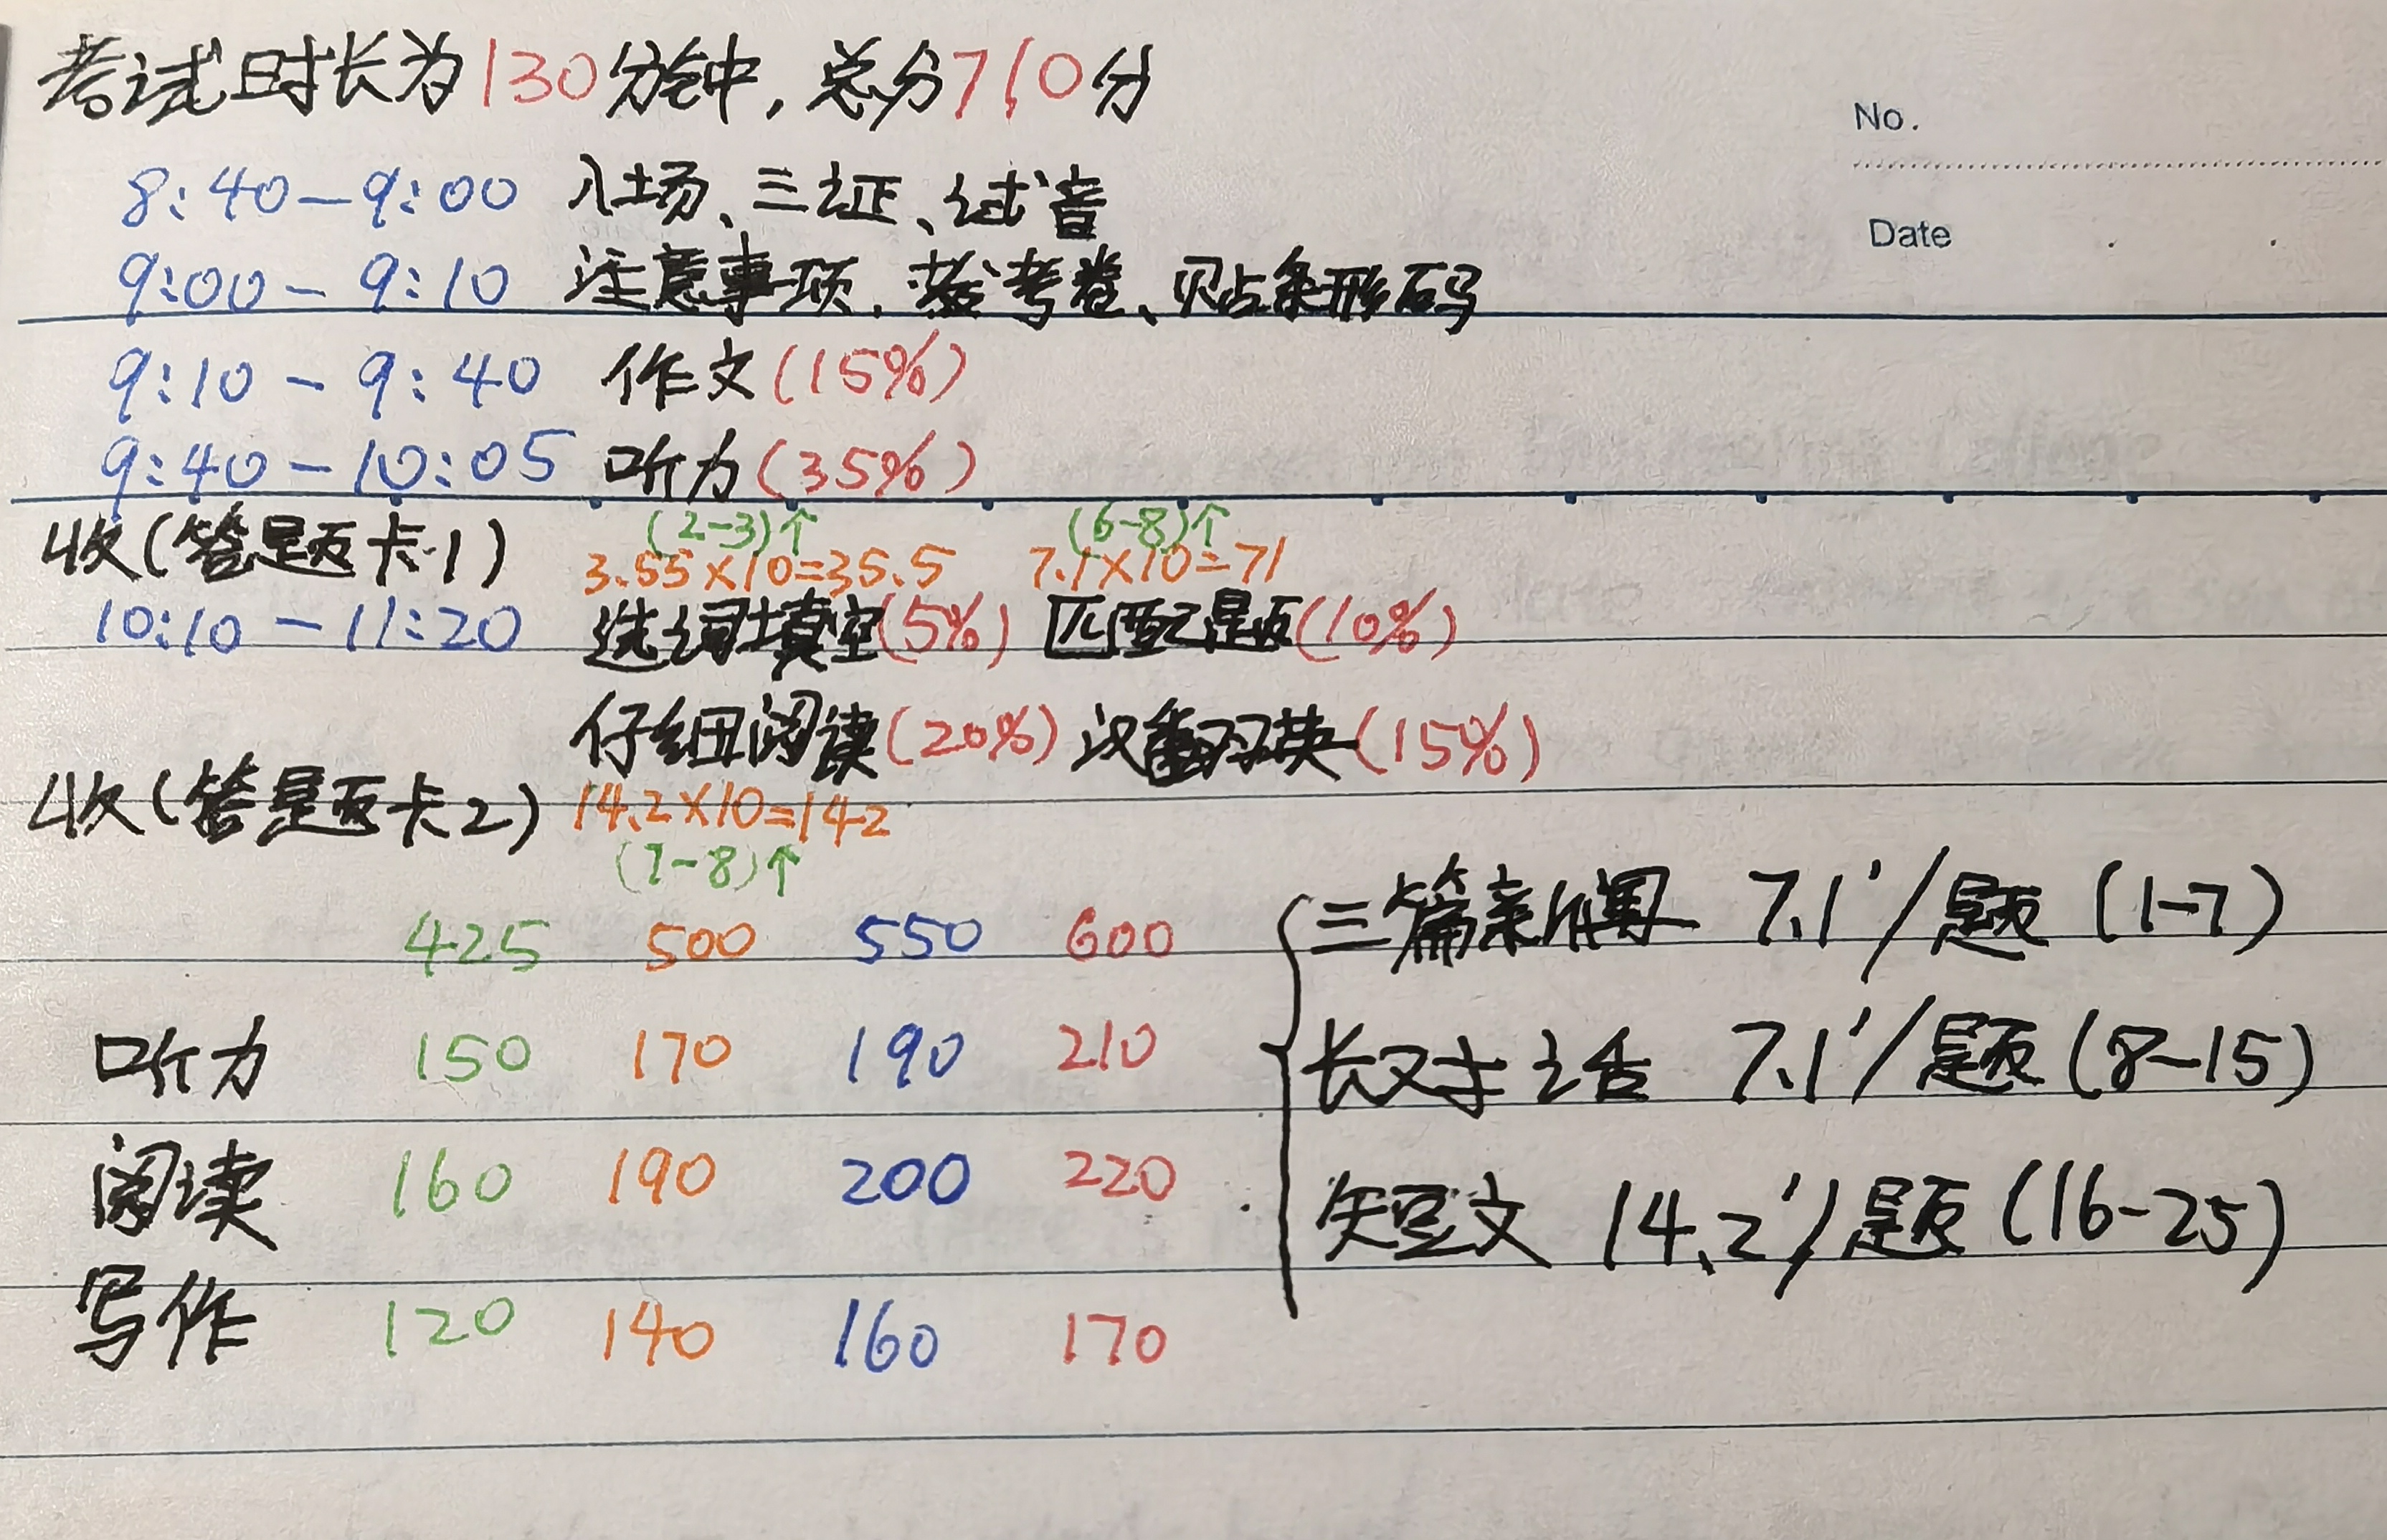 考试时长为130分钟,总分710分
No.
8:40-9:00 入场、三证、试音
Date
9:00-9:10 注意事项、发考卷、贴条形码
9:10-9:40 作文(15%)
9:40-10:05 听力(35%)
收(答题卡1) (2-3)↑ (6-8)↑
3.55×10=35.5 7.1×10=71
10:10-11:20 选词填空(5%) 匹配题(10%)
仔细阅读(20%) 汉翻英(15%)
收(答题卡2) 14.2×10=142
(7-8)↑
425 500 550 600
听力 150 170 190 210
阅读 160 190 200 220
写作 120 140 160 170
三篇新闻 7.1'/题(1-7)
长对话 7.1'/题(8-15)
短文 14.2'/题(16-25)